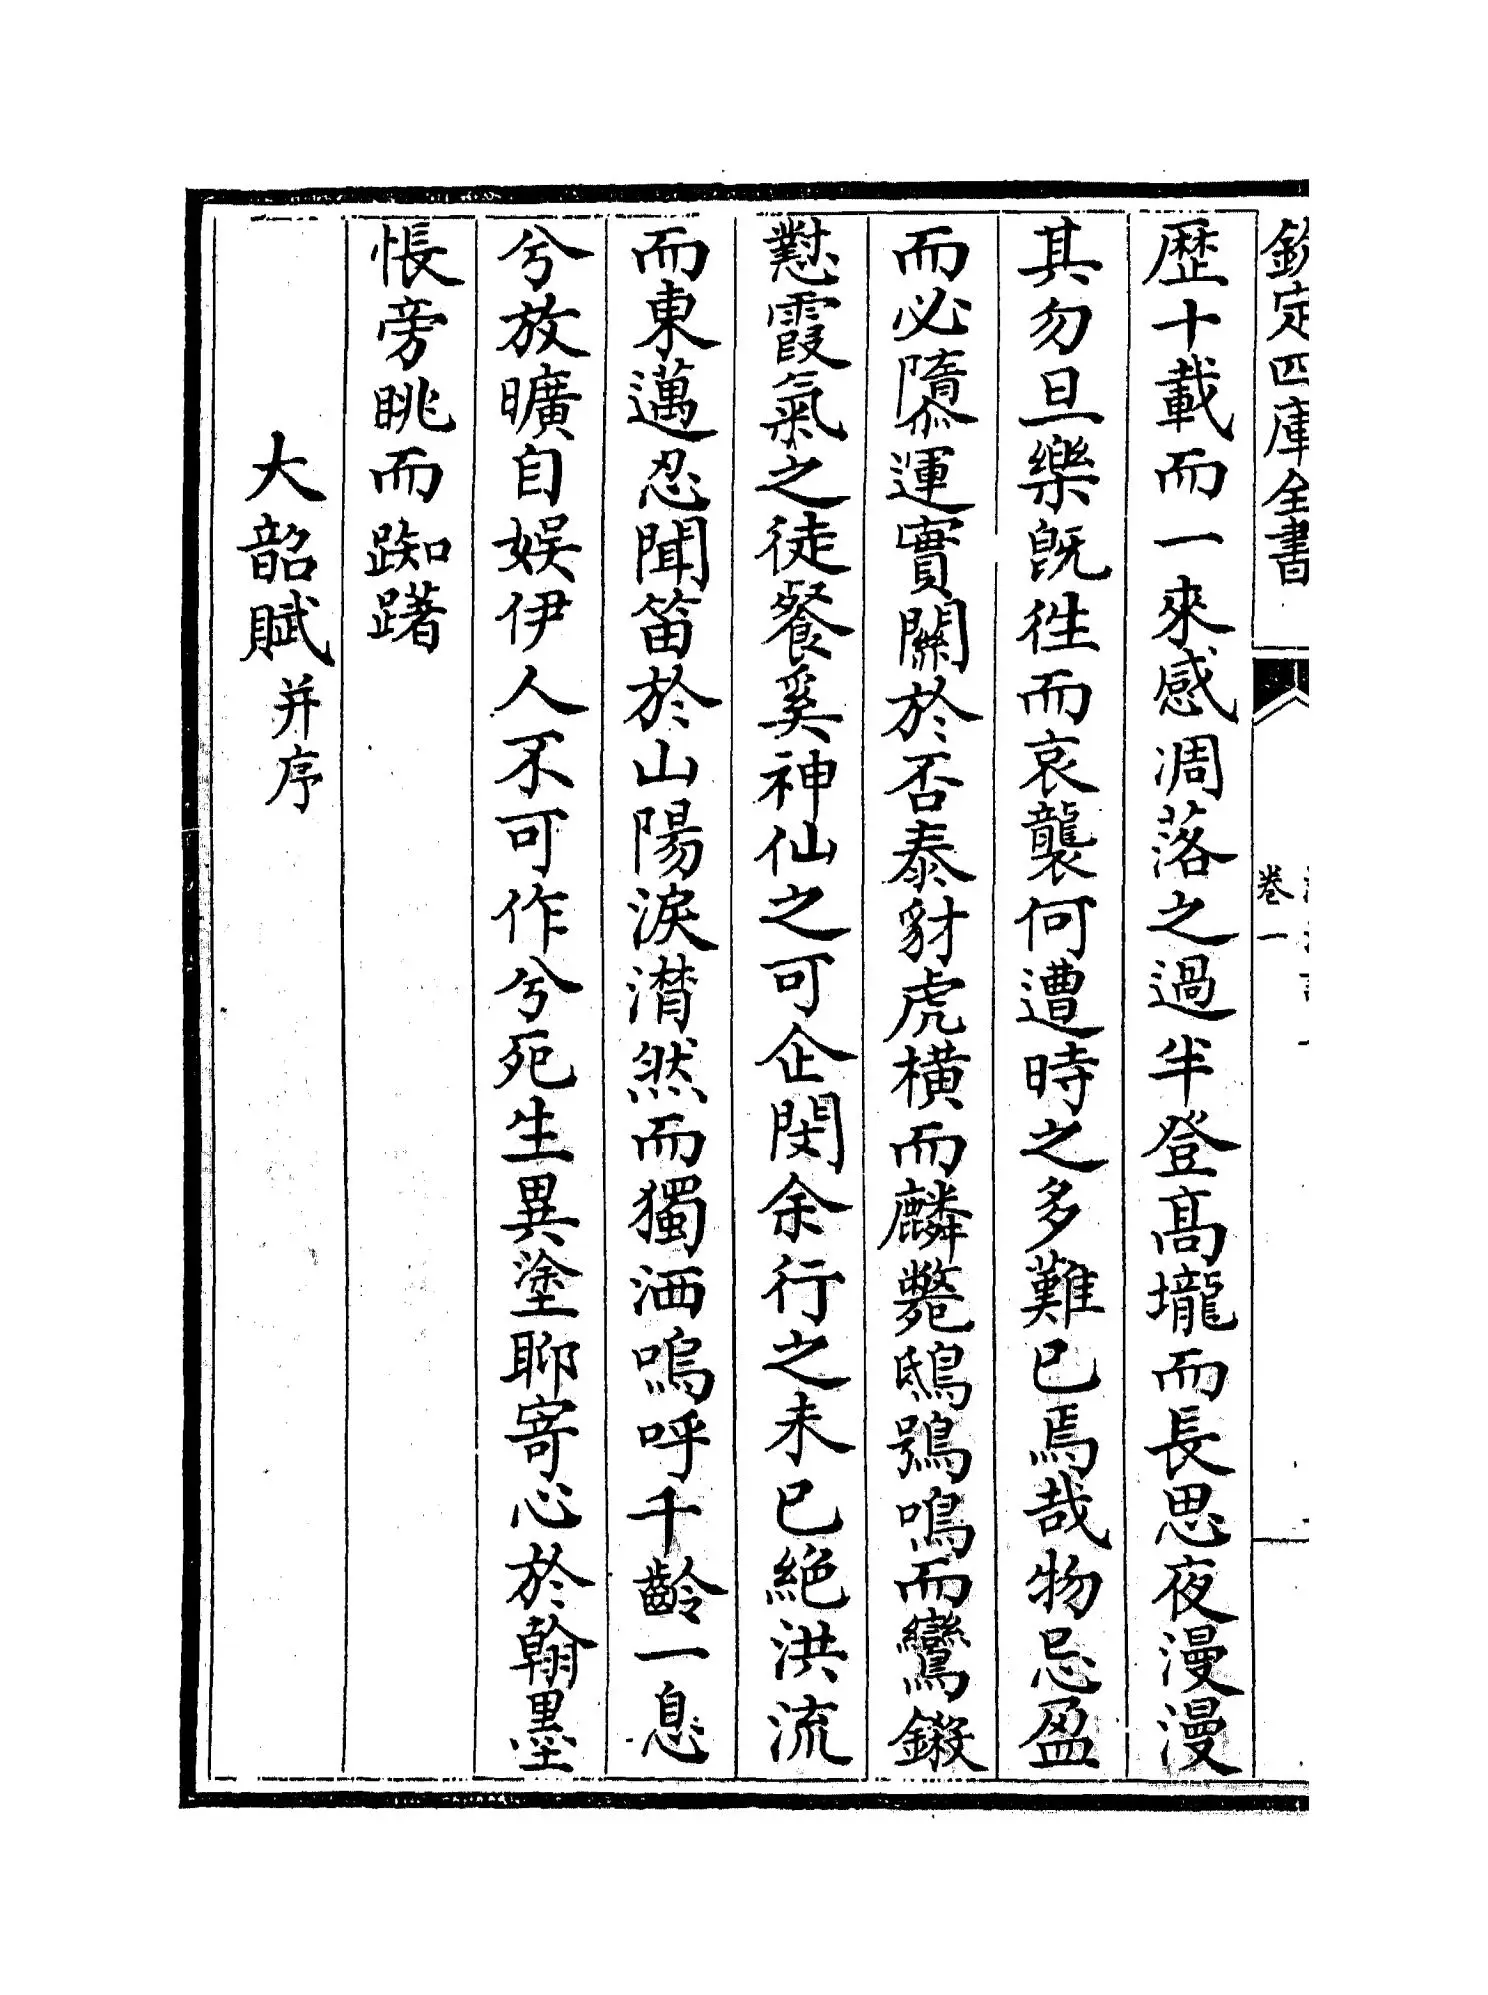 欽定四庫全書
卷一
歷十載而一來感凋落之過半登髙壠而長思夜漫漫
其勿旦樂旣徃而哀襲何遭時之多難已焉哉物忌盈
而必隳運實關於否泰豺虎横而麟斃鴟鴞鳴而鸞鎩
懟霞氣之徒餐奚神仙之可企閔余行之未已絶洪流
而東邁忍聞笛於山陽淚潸然而獨洒嗚呼千齡一息
兮放曠自娛伊人不可作兮死生異塗聊寄心於翰墨
悵旁眺而踟躇
大韶賦并序